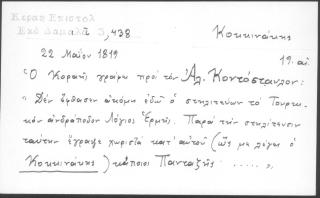 Κοραη Επιστολ
Εκδ Δαμαλᾶ 3, 438
Κοκκινάκης
22 Μαΐου 1819
19. αἰ
Ὁ Κοραῆς γράφει πρὸς τὸν Ἀλ. Κοντόσταυλον:
"Δὲν ἔφθασεν ἀκόμη ἐδῶ ὁ στηλιτεύων τὸ Τουρκι-
κὸν ἀνδράποδον Λόγιος Ἑρμῆς. Παρὰ τὴν στηλίτευσιν
ταύτην ἔγραψε χωριστὰ κατ' αὐτοῦ (ὡς με λέγει ὁ
Κοκκινάκης) κάποιος Πανταζῆς ..... "